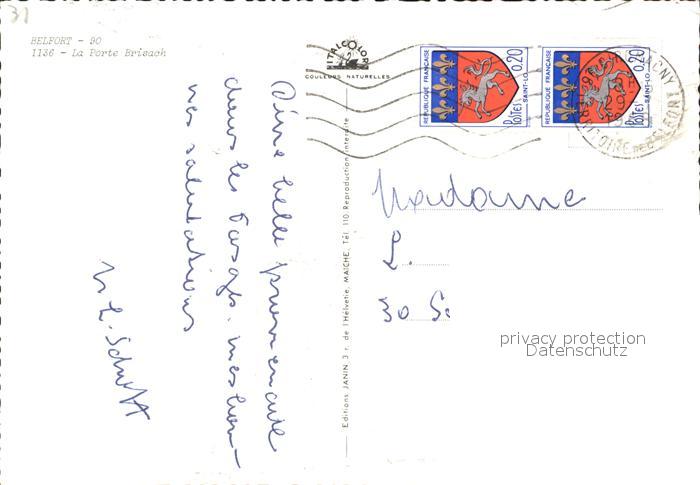 31
BELFORT - 90
1136 - La Porte Brisach
ITALCOLOR
COULEURS NATURELLES
REPUBLIQUE FRANÇAISE
0,20
POSTES
SAINT-LO
REPUBLIQUE FRANÇAISE
0,20
POSTES
SAINT-LO
D'une belle promenade
dans les Vosges. meilleu-
res salutations
Editions JANIN 3 r. de l'Helvetie, MAICHE, Tél. 110 Reproduction interdite
Madame
30 S.
privacy protection
Datenschutz